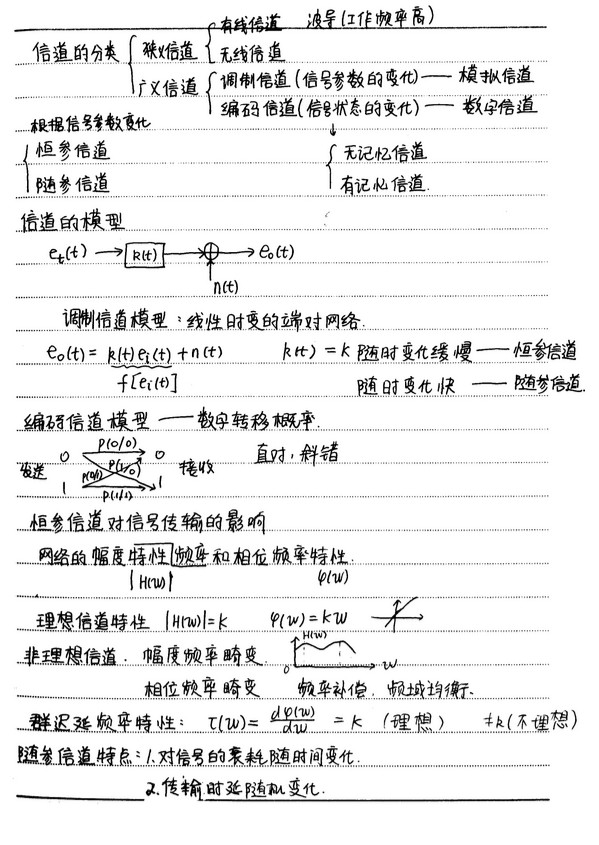 有线信道 波导(工作频率高)
信道的分类 狭义信道 无线信道
广义信道 调制信道(信号参数的变化)—— 模拟信道
编码信道(信号状态的变化)—— 数字信道
根据信号参数变化
恒参信道 无记忆信道
随参信道 有记忆信道.
信道的模型
eₜ(t) → k(t) → ⊕ → e₀(t)
n(t)
调制信道模型:线性时变的端对网络.
e₀(t) = k(t)eᵢ(t) + n(t) k(t) = k 随时变化缓慢 —— 恒参信道
f[eᵢ(t)] 随时变化快 —— 随参信道.
编码信道模型 —— 数字转移概率.
发送 0 P(0/0) 0 接收 直对,斜错
P(0/1) P(1/0)
1 P(1/1) 1
恒参信道对信号传输的影响
网络的幅度特性频率和相位频率特性.
|H(w)| φ(w)
理想信道特性 |H(w)|=K φ(w)=KW
非理想信道. 幅度频率畸变. H(w) 0 W
相位频率畸变 频率补偿. 频域均衡.
群迟延频率特性: τ(w)= dφ(w)/dw = K (理想) ≠k(不理想)
随参信道特点:1.对信号的衰耗随时间变化.
2.传输时延随机变化.